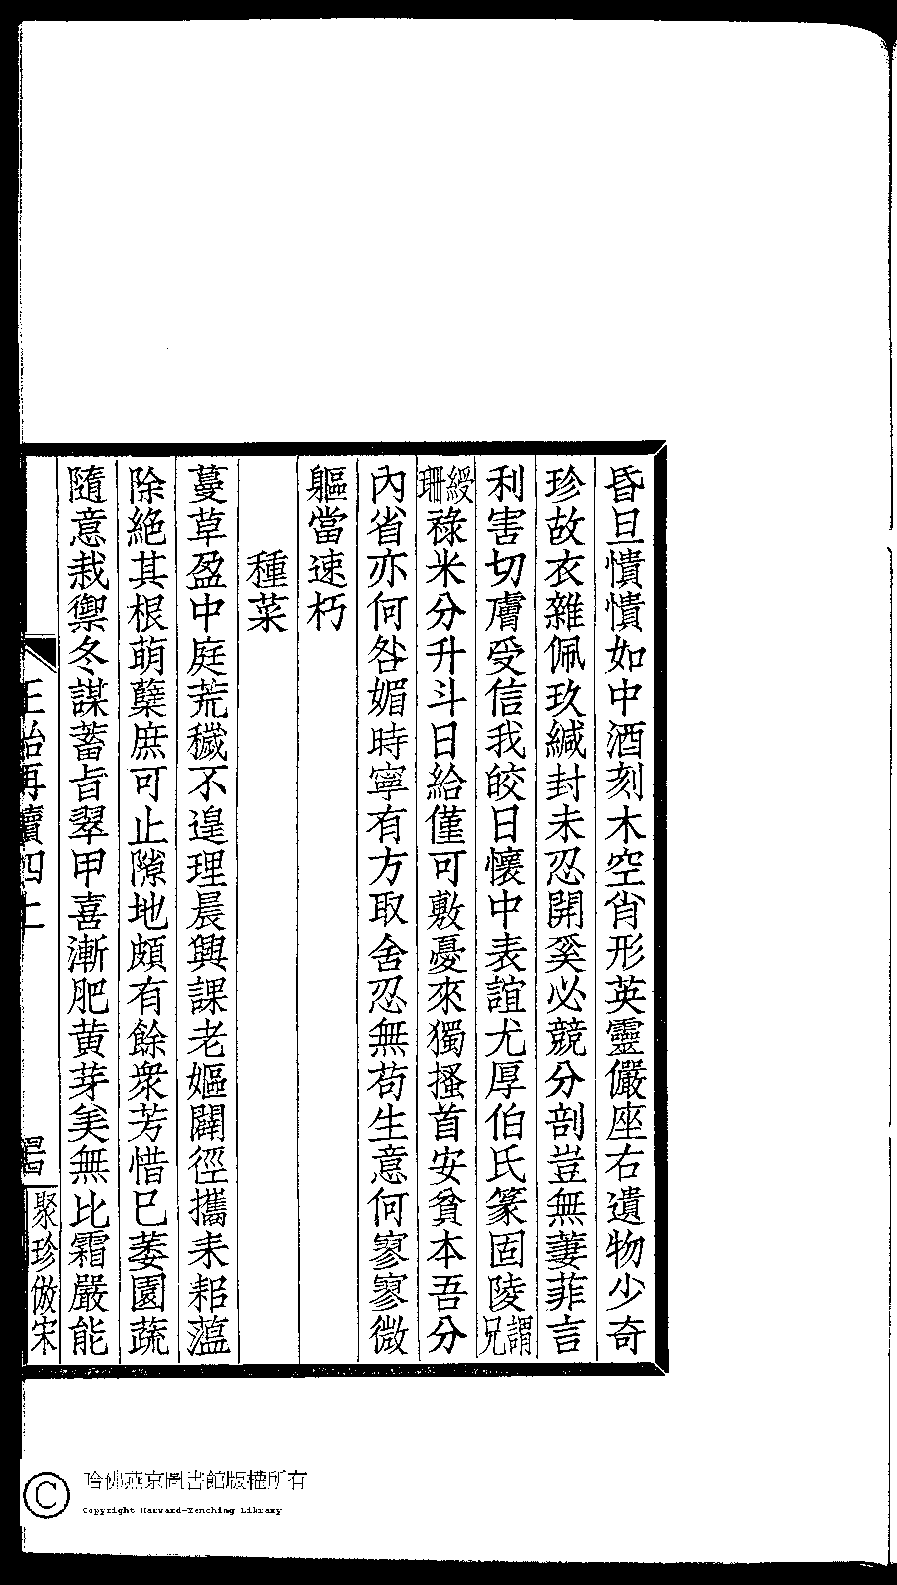 昏旦憒憒如中酒刻木空肖形英靈儼座右遺物少奇
珍故衣雜佩玖緘封未忍開奚必競分剖豈無萋菲言
利害切膚受信我皎日懷中表誼尤厚伯氏篆固陵謂兄
綬珊祿米分升斗日給僅可敷憂來獨搔首安貧本吾分
內省亦何咎媚時寧有方取舍忍無苟生意何寥寥微
軀當速朽
種菜
蔓草盈中庭荒穢不遑理晨興課老嫗闢徑攜耒耜薀
除絕其根萌蘖庶可止隙地頗有餘衆芳惜已萎園蔬
隨意栽禦冬謀蓄旨翠甲喜漸肥黄芽美無比霜嚴能
再續四上
聚珍倣宋
哈佛燕京圖書館版權所有
Copyright Harvard-Yenching Library